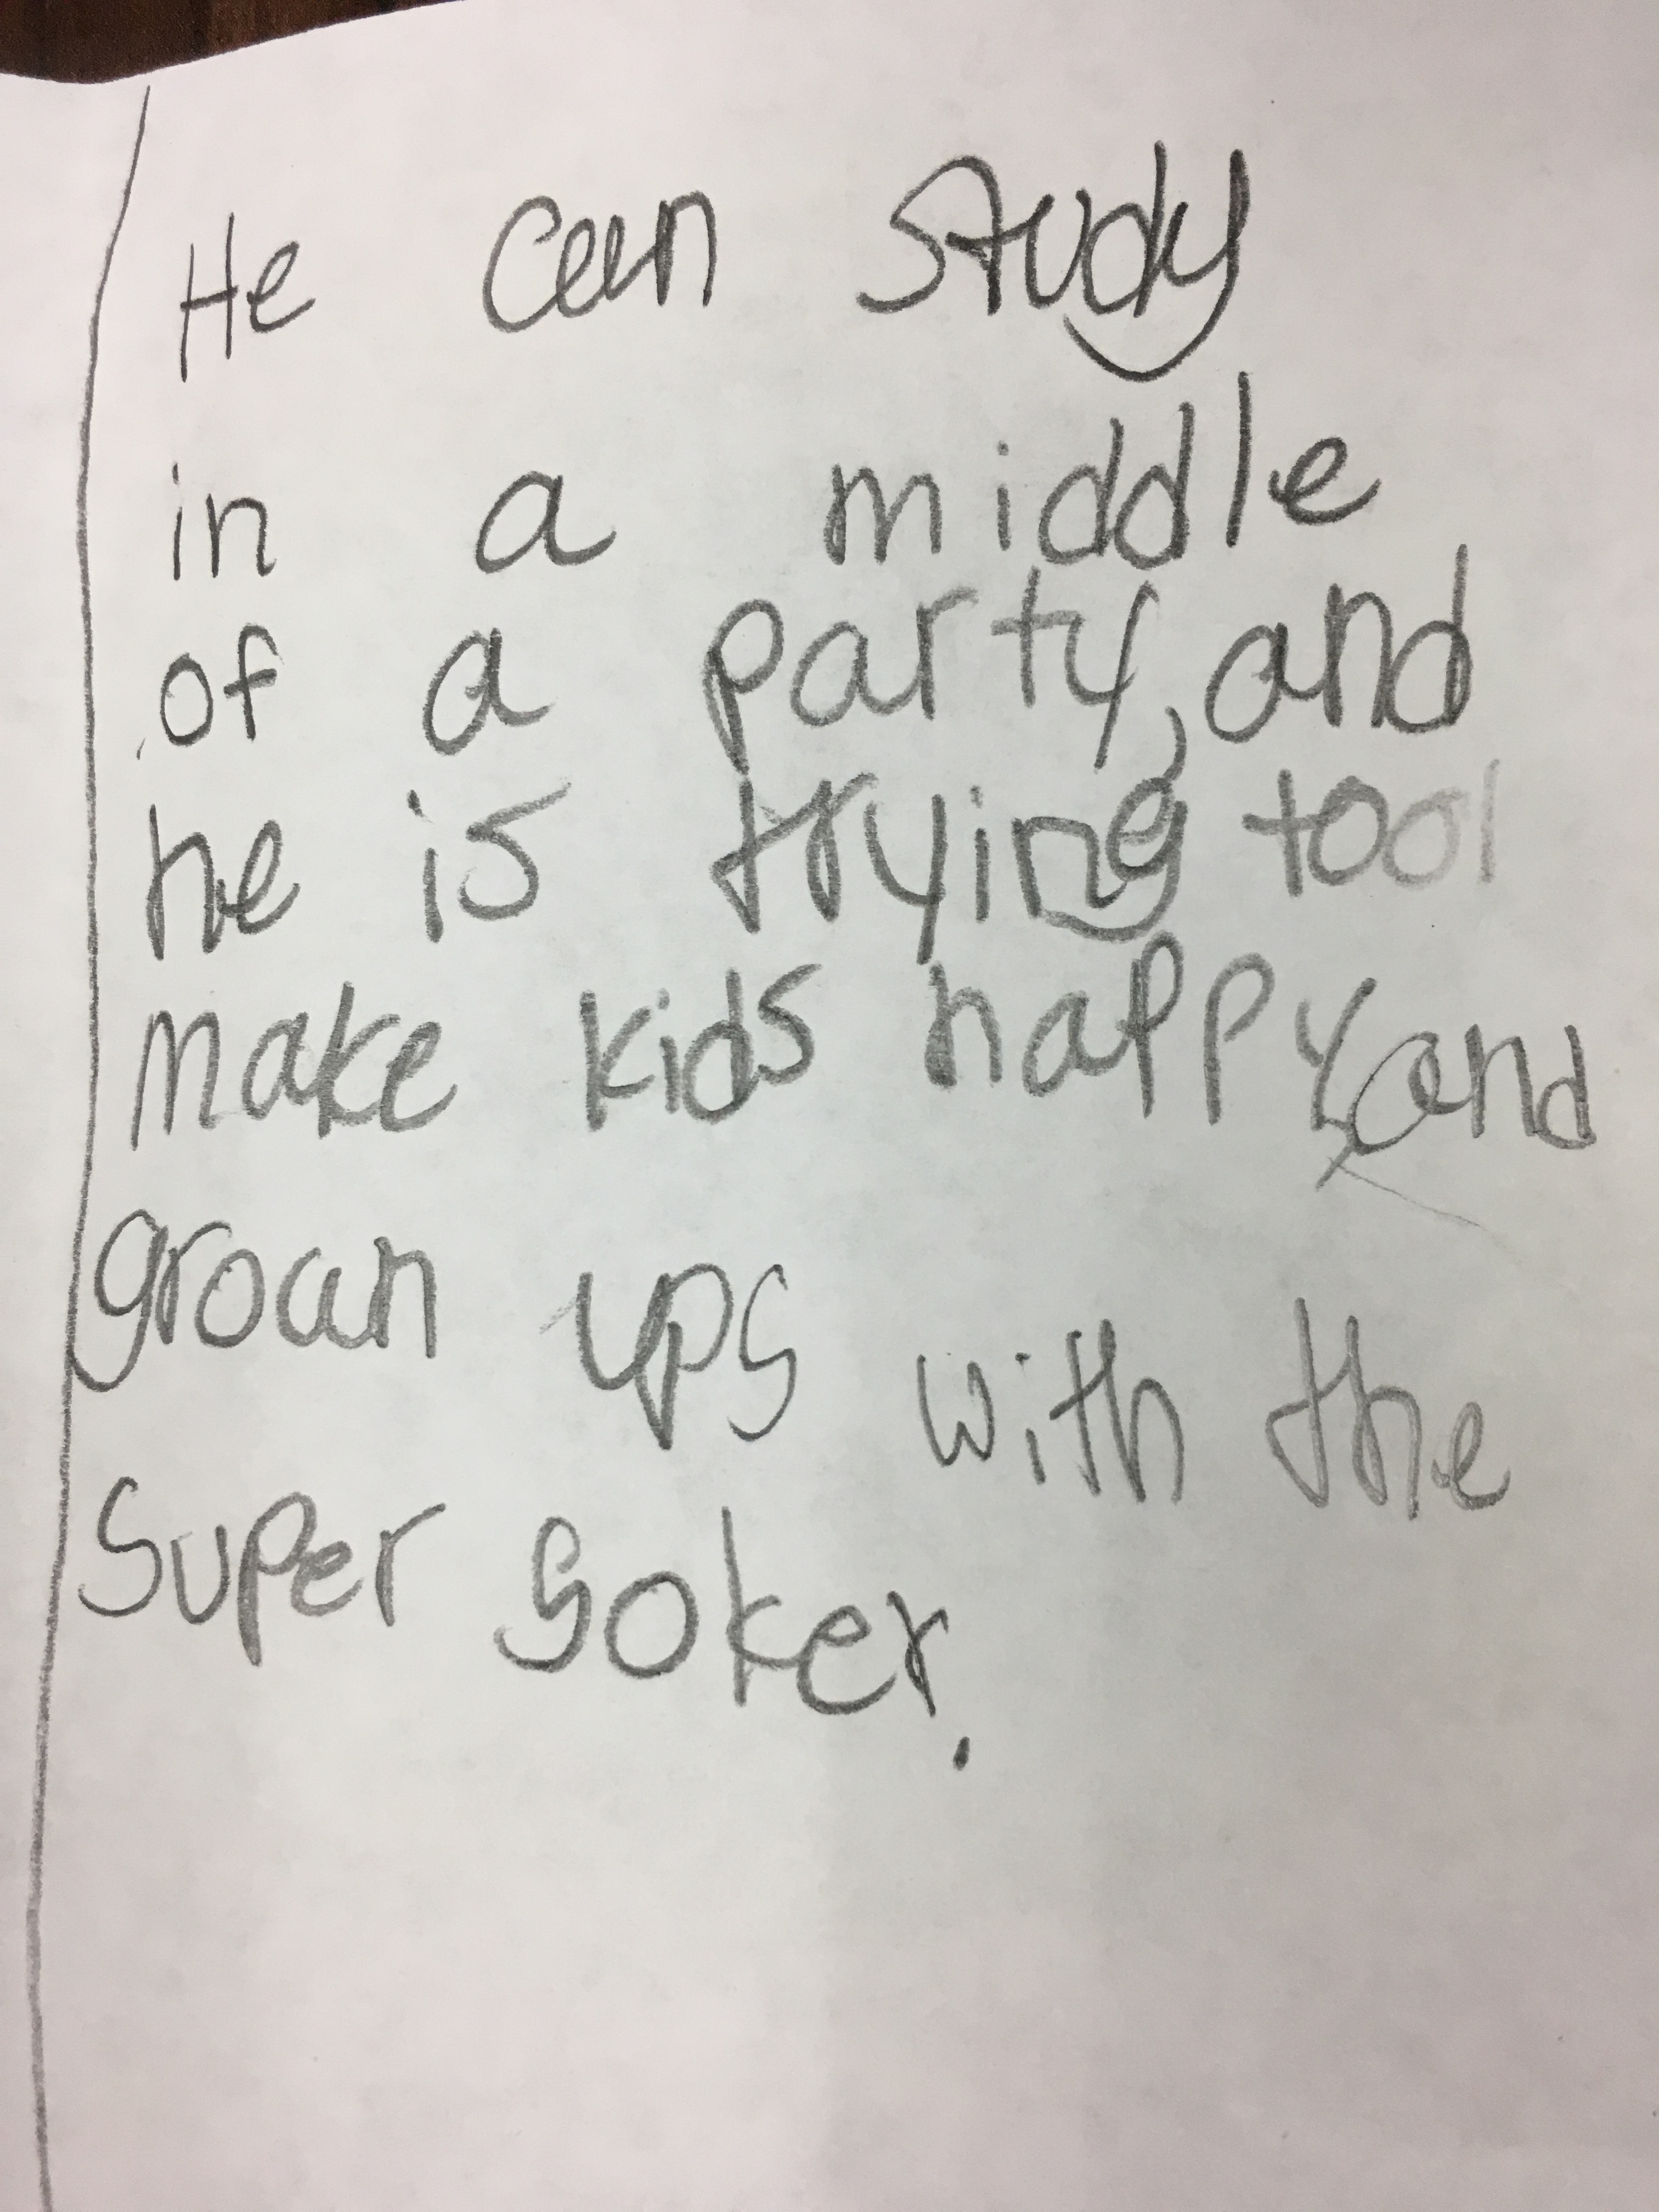 He can study
in a middle
of a party, and
he is trying to
make kids happy, and
groan ups with the
Super Soker.